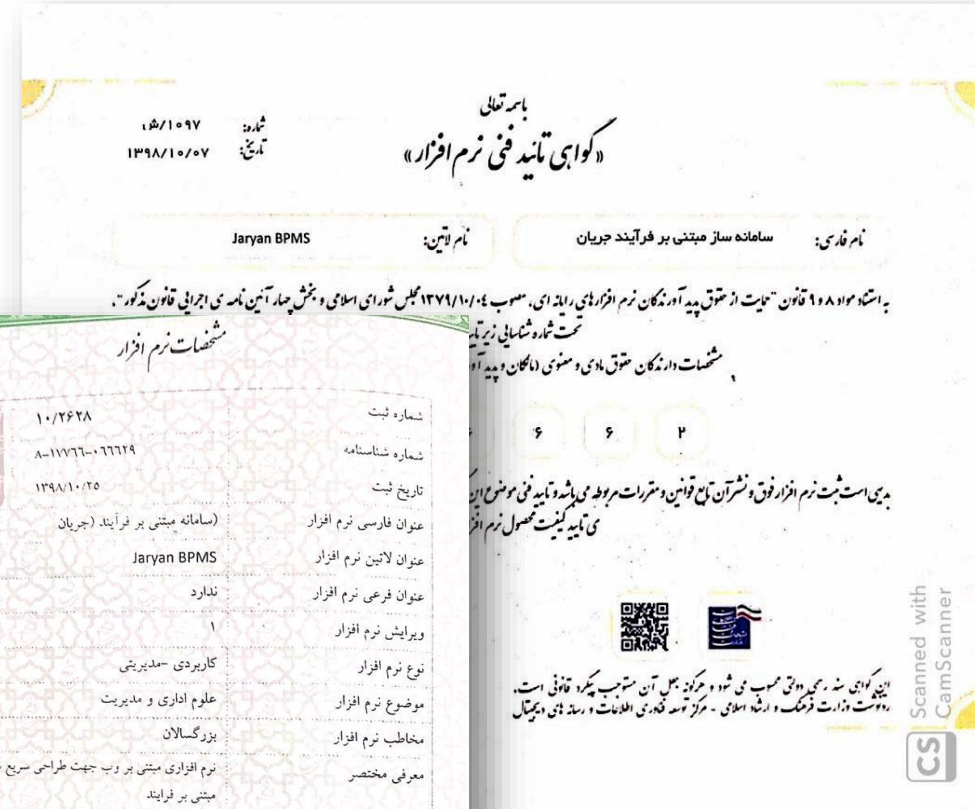 باسمه تعالی
«گواهی تائید فنی نرم افزار»
شماره: ۱۰۹۷/ش
تاریخ: ۱۳۹۸/۱۰/۰۷
نام فارسی: سامانه ساز مبتنی بر فرآیند جریان
نام لاتین: Jaryan BPMS
به استناد مواد ۸ و ۹ قانون "حمایت از حقوق پدید آورندگان نرم افزارهای رایانه ای، مصوب ۱۳۷۹/۱۰/۰۴ مجلس شورای اسلامی و بخش چهار آئین نامه ی اجرایی قانون مذکور".
تحت شماره شناسایی زیر
مشخصات دارندگان حقوق مادی و معنوی (مالکان و پدید
۶ ۶ ۲
بدیهی است ثبت نرم افزار فوق و نشر آن تابع قوانین و مقررات مربوطه می باشد و تایید فنی موضوع این
ی تایید کیفیت محصول نرم
این گواهی سند رسمی دولتی محسوب می شود و هرگونه جعل آن مستوجب پیگرد قانونی است.
رونوشت وزارت فرهنگ و ارشاد اسلامی - مرکز توسعه فناوری اطلاعات و رسانه های دیجیتال
مشخصات نرم افزار
شماره ثبت ۱۰/۲۶۲۸
شماره شناسنامه ۸-۱۱۷۶۶-۰۶۶۶۲۹
تاریخ ثبت ۱۳۹۸/۱۰/۲۵
عنوان فارسی نرم افزار (سامانه مبتنی بر فرآیند (جریان
عنوان لاتین نرم افزار Jaryan BPMS
عنوان فرعی نرم افزار ندارد
ویرایش نرم افزار ۱
نوع نرم افزار کاربردی -مدیریتی
موضوع نرم افزار علوم اداری و مدیریت
مخاطب نرم افزار بزرگسالان
معرفی مختصر نرم افزاری مبتنی بر وب جهت طراحی سریع
مبتنی بر فرایند
Scanned with
CamScanner
CS